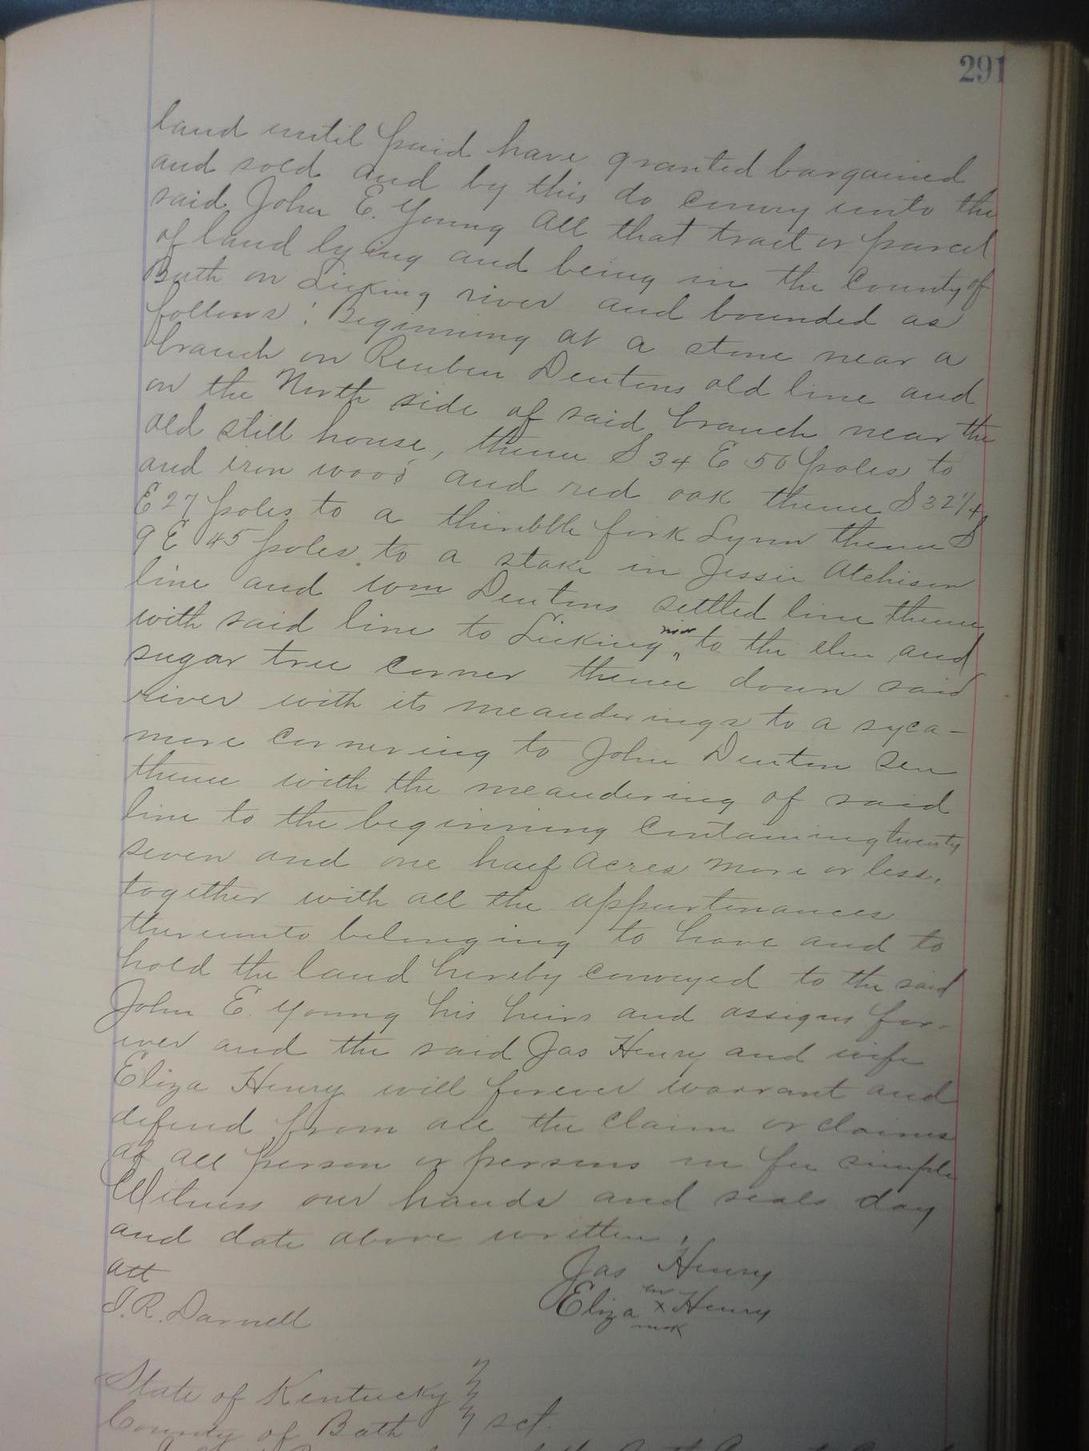 291
land until paid have granted bargained
and sold and by this do convey unto the
said John E. Young All that tract or parcel
of land lying and being in the County of
Bath on Licking river and bounded as
follows: Beginning at a stone near a
branch on Reuben Dentons old line and
on the North side of said branch near the
old still house, thence S 34 E 50 poles to
and iron wood and red oak thence S 32 1/4
E 27 poles to a thimbble fork Lynn thence S
9 E 45 poles to a stake in Jessie Atchison
line and Wm Dentons settled line thence
with said line to Licking river to the elm and
sugar tree corner thence down said
river with its meanderings to a syca-
more cornering to John Denton Sen
thence with the meandering of said
line to the beginning containing twenty
seven and one half acres more or less,
together with all the appurtenances
thereunto belonging to have and to
hold the land hereby conveyed to the said
John E. Young his heirs and assigns for-
ever and the said Jas Henry and wife
Eliza Henry will forever warrant and
defend from all the claim or claims
of all person or persons in fee simple
Witness our hands and seals day
and date above written.
att Jas Henry
I. R. Darnell Eliza her x mark Henry
State of Kentucky
County of Bath sct.